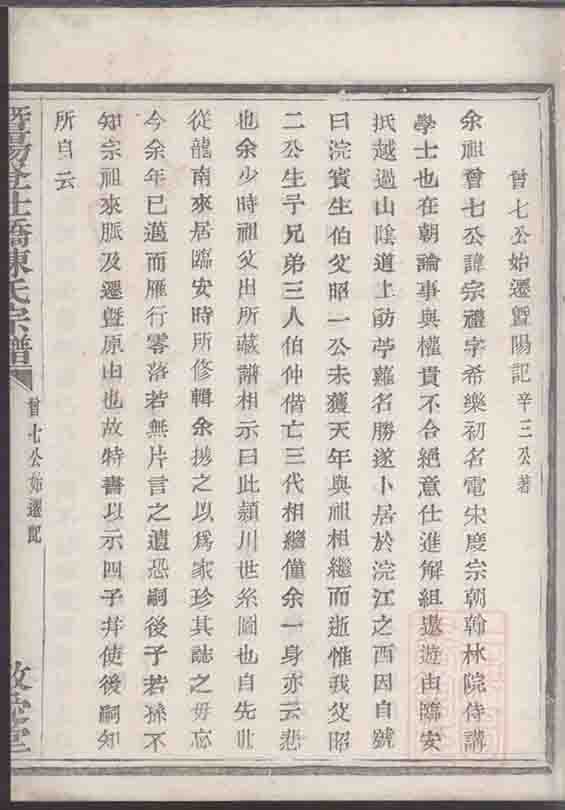 曾七公始遷暨陽記 辛三公著
余祖曾七公諱宗禮字希樂初名電宋度宗朝翰林院侍講
學士也在朝論事與權貴不合絕意仕進解組遨遊由臨安
抵越過山陰道上訪苧蘿名勝遂卜居於浣江之西因自號
曰浣賓生伯父昭一公未獲天年與祖相繼而逝惟我父昭
二公生予兄弟三人伯仲偕亡三代相繼僅余一身亦云悲
也余少時祖父出所藏譜相示曰此潁川世系圖也自先世
從龍南來居臨安時所修輯余拶之以爲家珍其誌之毋忘
今余年已邁而雁行零落若無片言之遺恐嗣後子若孫不
知宗祖來脈及遷暨原由也故特書以示四子幷使後嗣知
所自云
暨陽 仕橋陳氏宗譜
曾七公始遷記